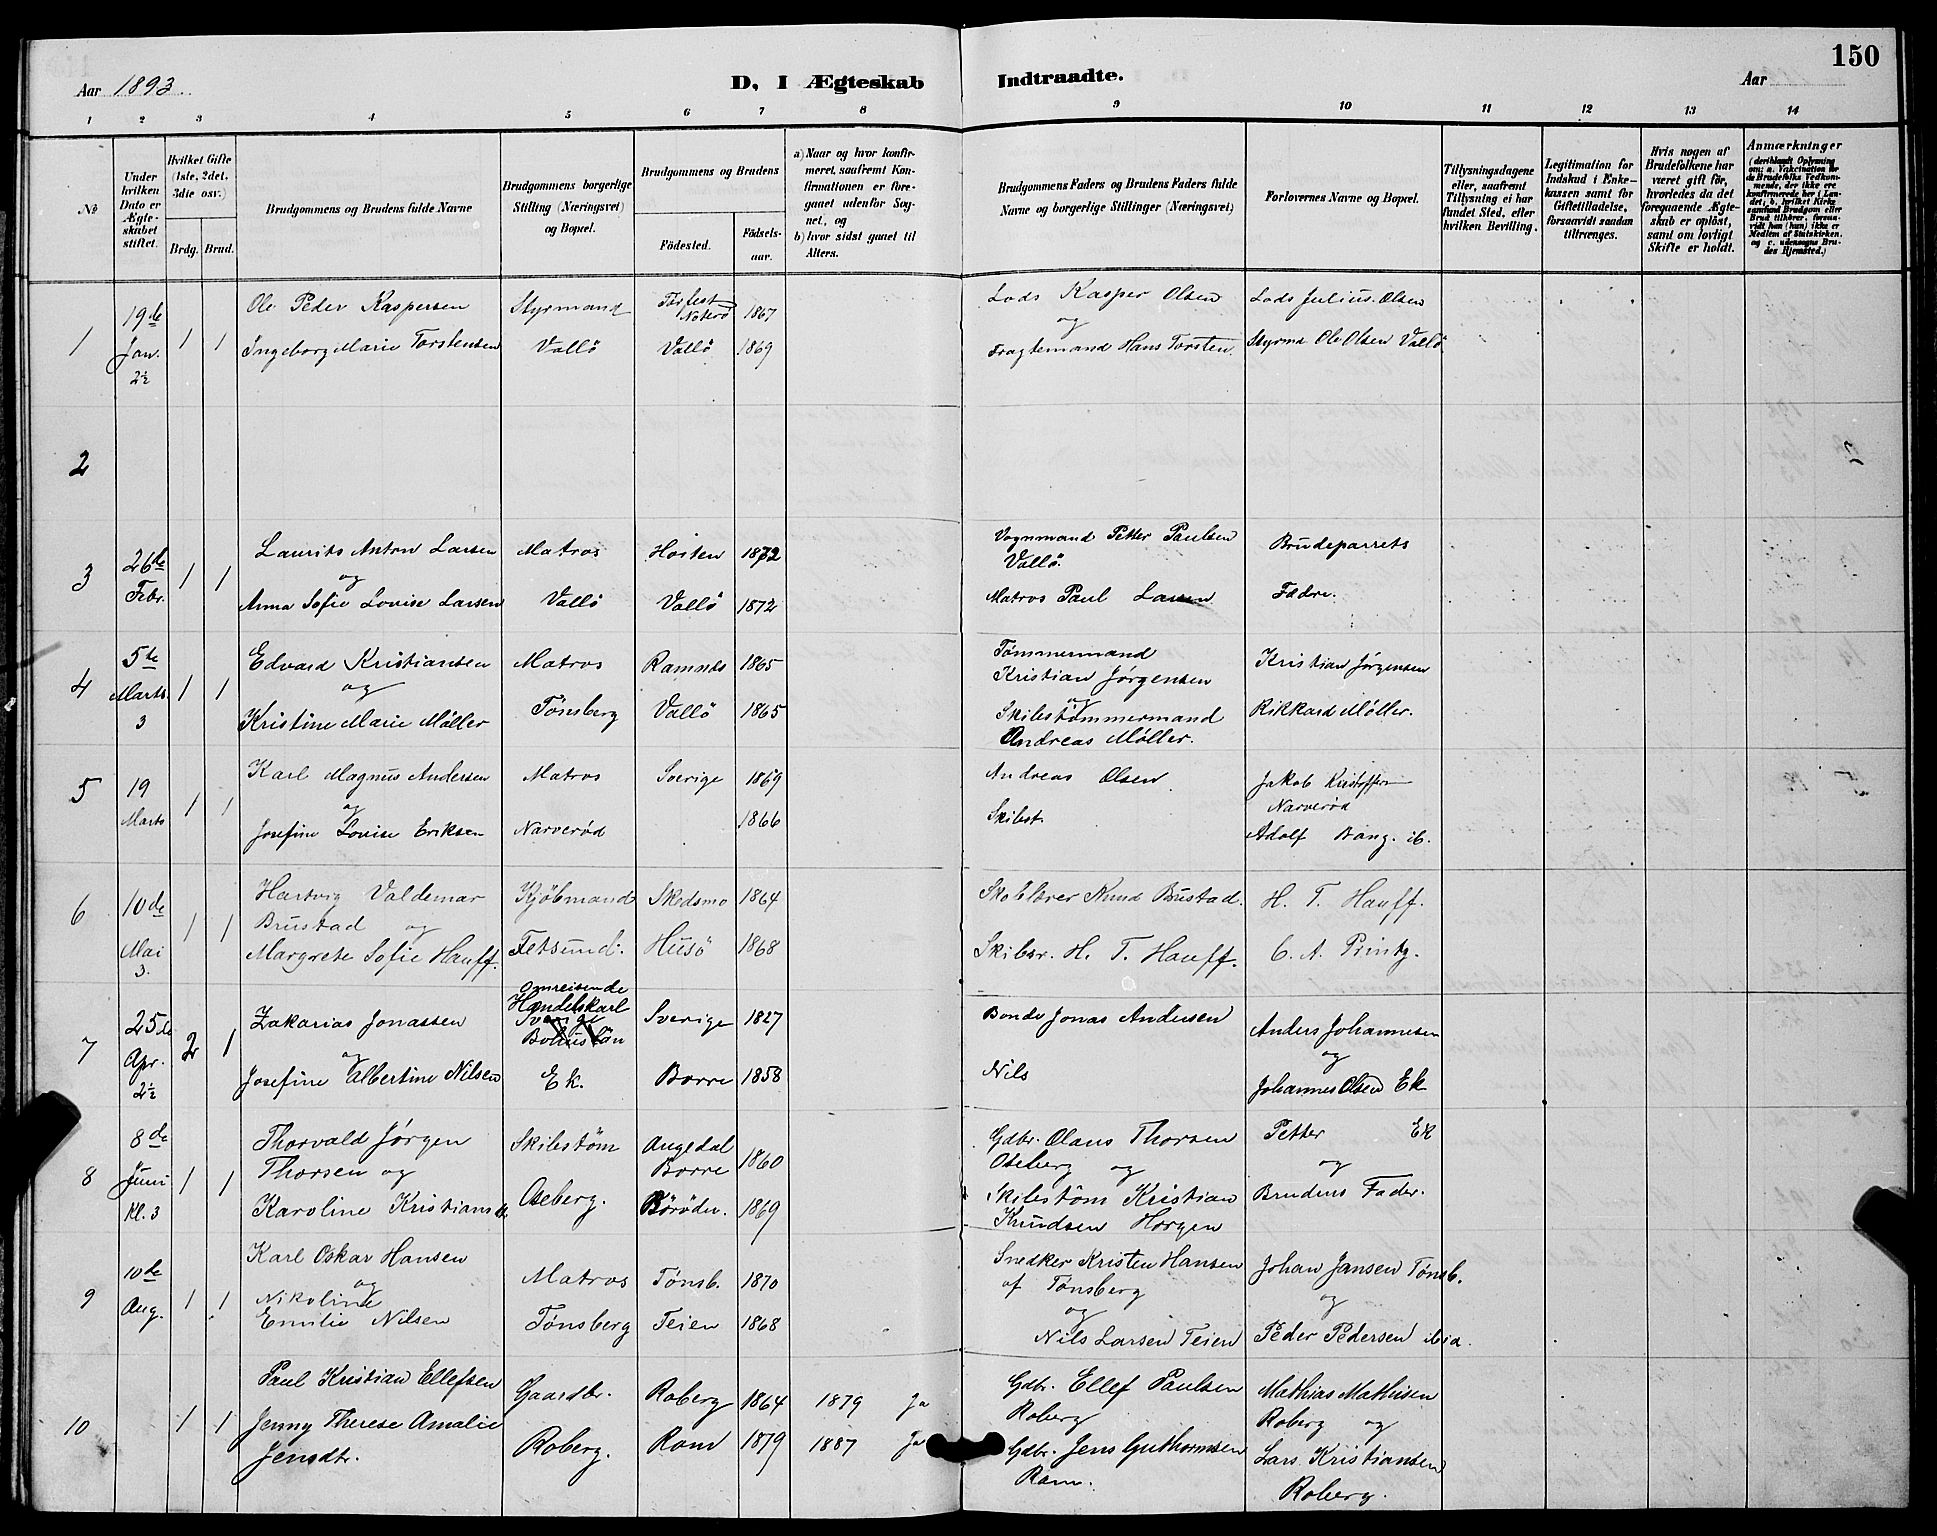 150
Aar 1893.
D, I Ægteskab Indtraadte.
Aar
1 2 3 4 5 6 7 8 9 10 11 12 13 14
№
Under hvilken Dato er Ægteskabet stiftet.
Hvilket Gifte (1ste, 2det, 3die osv.)
Brdg. Brud.
Brudgommens og Brudens fulde Navne
Brudgommens borgerlige Stilling (Næringsvei) og Bopæl.
Brudgommens og Brudens
Fødested.
Fødselsaar.
a) Naar og hvor konfirmeret, saafremt Konfirmationen er foregaaet udenfor Sognet, og
b) hvor sidst gaaet til Alters.
Brudgommens Faders og Brudens Faders fulde Navne og borgerlige Stillinger (Næringsvei)
Forlovernes Navne og Bopæl.
Tillysningsdagene eller, saafremt Tillysning ei har fundet Sted, efter hvilken Bevilling.
Legitimation for Indskud i Enkekassen samt for Giftetilladelse, forsaavidt saadan tiltrænges.
Hvis nogen af Brudefolkene har været gift før, hvorledes da det foregaaende Ægteskab er opløst, samt om lovligt Skifte er holdt.
Anmærkninger (deriblandt Oplysning om: a. Vakcination for de Brudefolks Vedkommende, der ikke ere konfirmerede her i Landet; b. hvilket Kirkesamfund Brudgom eller Brud tilhører, forsaavidt han (hun) ikke er Medlem af Statskirken, og c. udensogns Brudes Hjemsted.)
1 19de Jan. 2½ 1 1
Ole Peder Kaspersen Styrmand Nøterø 1867 Lods Kasper Olsen Lods Julius Olsen
og
Ingeborg Marie Torstensen Vallö Vallö 1869 Fragtemand Hans Torsten. Styrm Ole Olsen Vallö
2
3 26de Febr. 1 1
Laurits Anton Larsen Matros Hosten 1872 Vognmand Petter Paulsen Vallö. Brudeparrets
og
Anna Sofie Lovise Larsen Vallö Vallö 1872 Matros Paul Larsen Fædre.
4 5te Marts 3 1 1
Edvard Kristiansen Matros Ramnes 1865 Tömmermand Kristian Jørgensen Kristian Jørgensen
og og
Kristine Marie Möller Tönsberg Vallö 1865 Skibstömmermand Andreas Møller. Rikkard Møller.
5 19 Marts 1 1
Karl Magnus Andersen Matros Sverige 1869 Andreas Olsen Jakob Kristoffersen Narverød
og
Josefine Lovise Eriksen Narverød 1866 Skibst. Adolf Bang. ib.
6 10de Mai 3. 1 1
Hartvig Valdemar Brustad og Kjöbmand Skedsmo 1864 Skolelærer Knud Brustad. H. T. Hauff.
Margrete Sofie Hauff. Fetsund. Husö 1868 Skibsr. H. T. Hauff. C. A. Printz.
7 25de Apr. 2½ 2 1
Zakarias Jonassen omreisende Handelskarl Sverige 1827 Bonde Jonas Andersen Anders Johannesen
og og
Josefine Albertine Nilsen Ek. Borre 1858 Nils Johannes Olsen Ek
8 8de Juni Kl. 3 1 1
Thorvald Jørgen Thorsen og Skibstöm Augedal Borre 1860 Gdbr. Olaus Thorsen Oseberg og Petter Ek
og
Karoline Kristians Oseberg. 1869 Skibstöm Kristian Knudsen Horgen Brudens Fader.
9 10de Aug. 1 1
Karl Oskar Hansen Matros Tönsb. 1870 Snedker Kristen Hansen af Tønsberg Johan Jansen Tönsb.
og og og
Nikoline Emilie Nilsen Tönsberg Teien 1868 Nils Larsen Teien Peder Pedersen ibid.
10 1 1
Paul Kristian Ellefsen Gaardbr. Roberg 1864 1879 Ja Gdbr. Ellef Paulsen Roberg Mathias Mathisen Roberg og
Jenny Therese Amalie Jensdtr. Roberg. Rom 1879 1887 Ja Gdbr. Jens Guthormsen Rom. Lars Kristiansen Roberg.